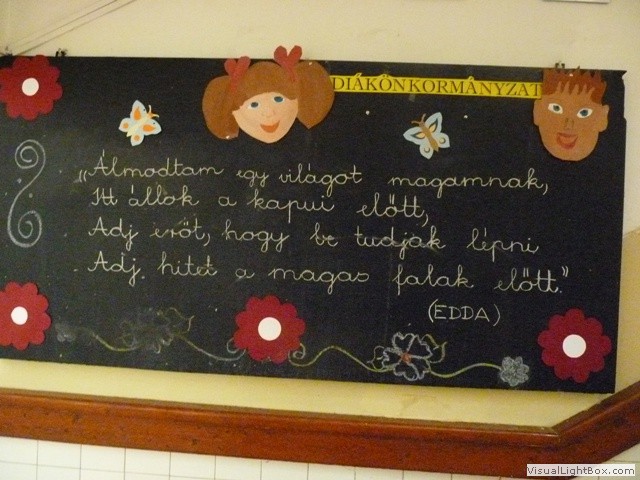 DIÁKÖNKORMÁNYZAT
„Álmodtam egy világot magamnak,
Itt állok a kapui előtt,
Adj erőt, hogy be tudjak lépni
Adj hitet a magas falak előtt."
(EDDA)
VisualLightBox.com